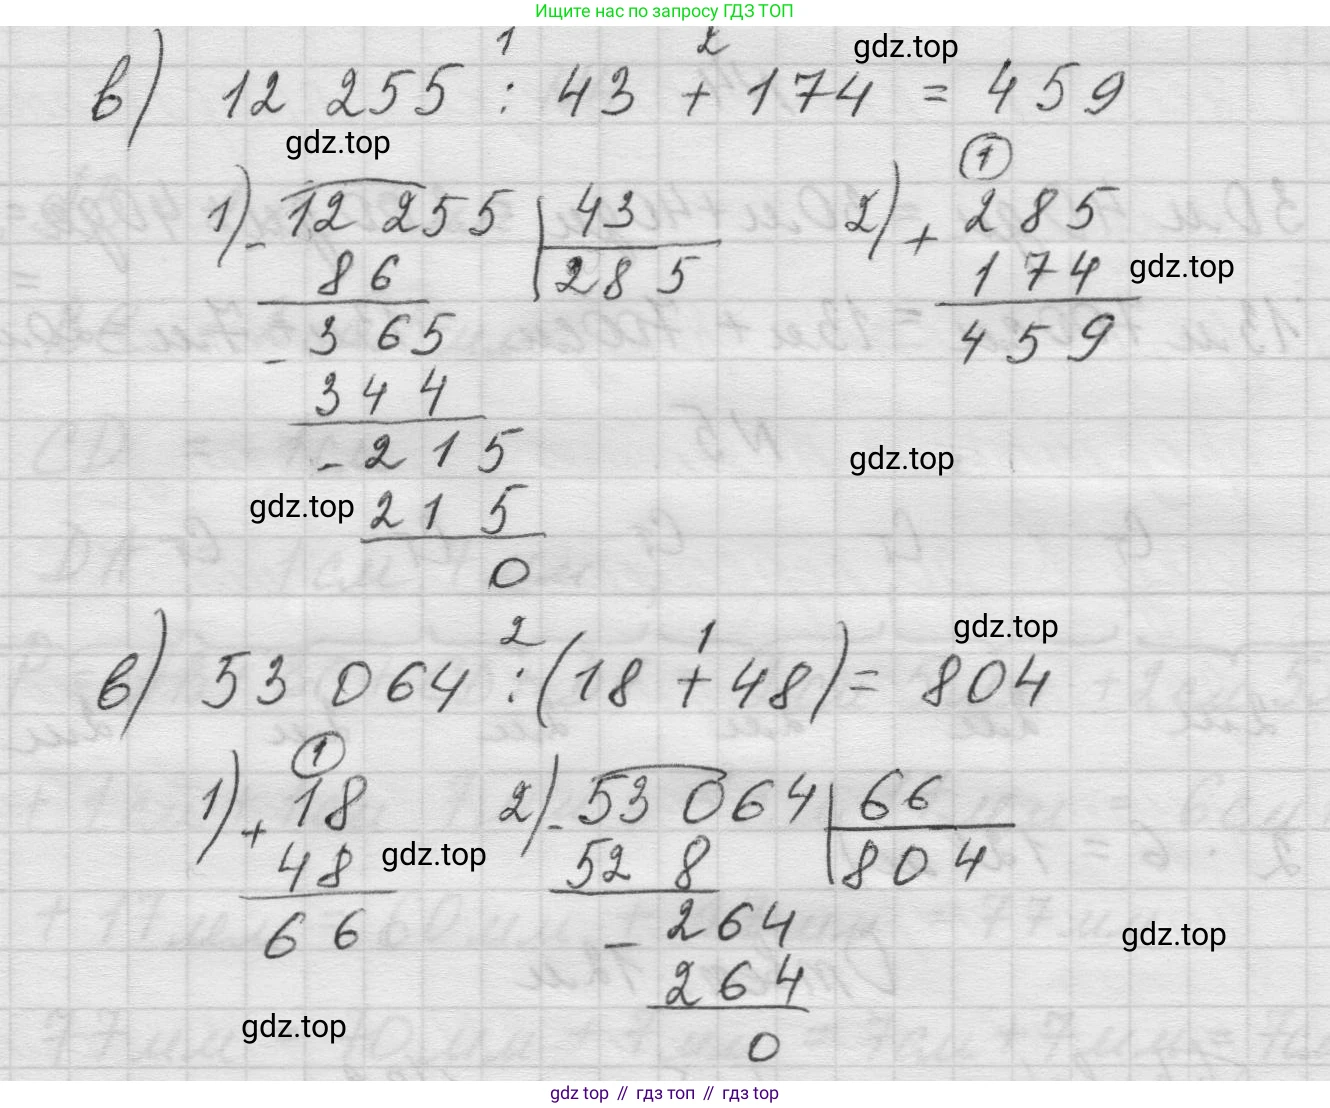 Ищите нас по запросу ГДЗ ТОП
1 2
в) 12 255 : 43 + 174 = 459
gdz.top
gdz.top
1) - 12 255 | 43
86 | 285
- 365
344
- 215
215
0
2) + 1
285
174
459
gdz.top
gdz.top
gdz.top
2 1
в) 53 064 : (18 + 48) = 804
gdz.top
1) + 1
18
48
66
gdz.top
2) - 53 064 | 66
52 8 | 804
- 264
264
0
gdz.top
gdz.top
gdz top // гдз топ // гдз top